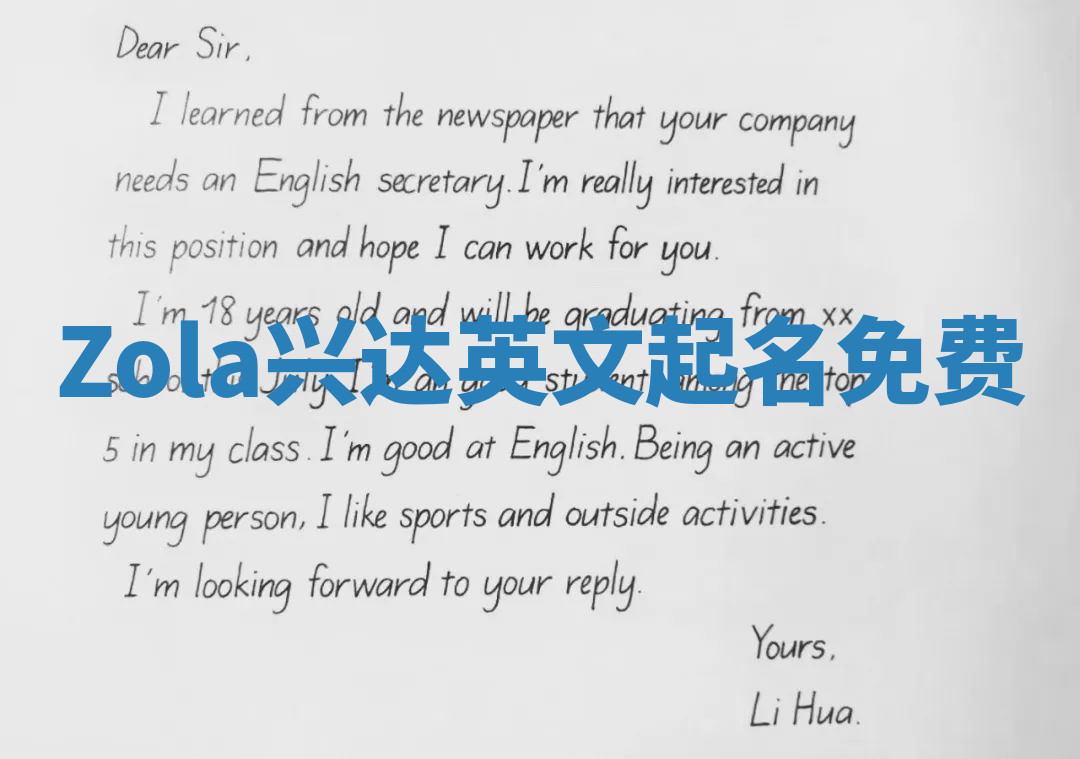 Dear Sir,
I learned from the newspaper that your company
needs an English secretary. I'm really interested in
this position and hope I can work for you.
I'm 18 years old and will be graduating from xx
Zola兴达英文起名免费
school this July. I'm an good student among the top
5 in my class. I'm good at English. Being an active
young person, I like sports and outside activities.
I'm looking forward to your reply.
Yours,
Li Hua.